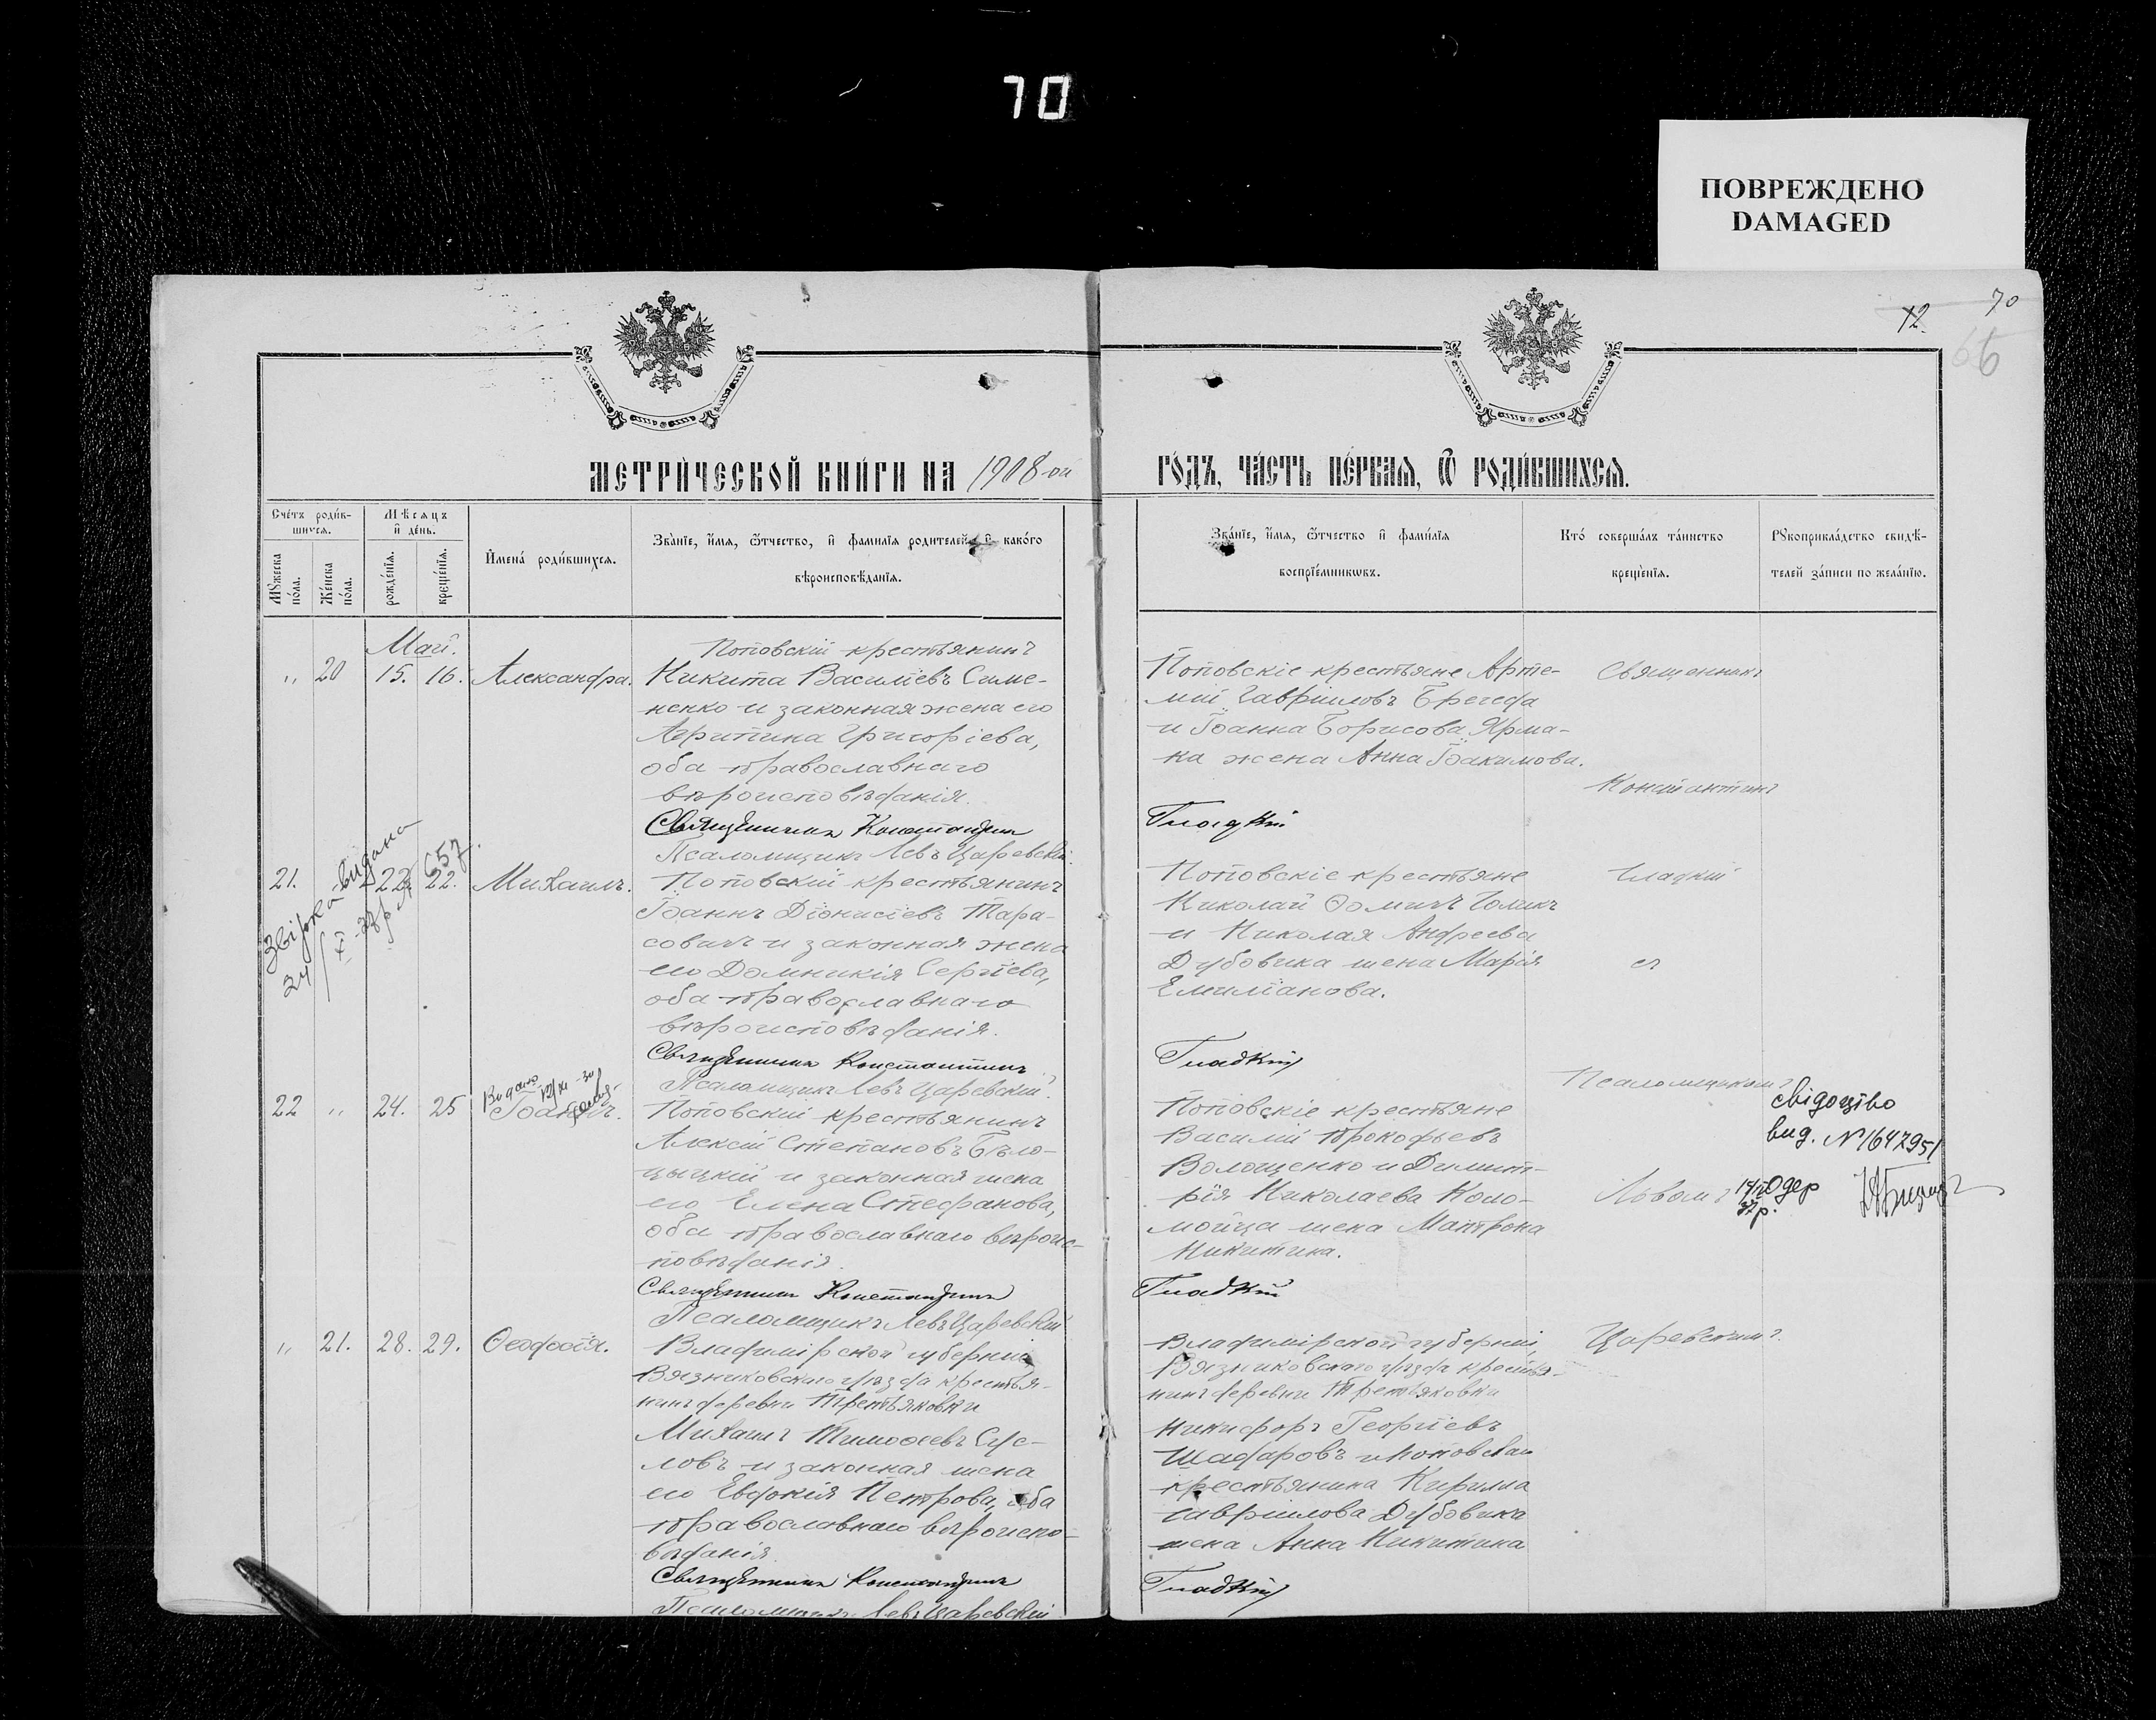 70
ПОВРЕЖДЕНО
DAMAGED
12.
70
66
МЕТРИ́ЧЕСКОЙ КНИ́ГИ НА 1908-ой
ГО́ДЪ, ЧА́СТЬ ПЕ́РВАЯ, Ѿ РОДИ́ВШИХСЯ.
Сче́тъ роди́в-
шихся.
Мѣсяцъ
и҆ де́нь.
Мꙋ́жеска по́ла.
Же́нска по́ла.
рожде́нїя.
креще́нїя.
И҆мена̀ роди́вшихся.
Зва́нїе, и҆́мя, ѻ҆́тчество, и҆ фами́лїя роди́телей, и҆ како́гѡ
вѣроисповѣ́данїя.
Зва́нїе, и҆́мя, ѻ҆́тчество и҆ фами́лїя
воспрїе́мникѡвъ.
Кто́ соверша́лъ та́инство
креще́нїя.
Рꙋкоприкла́дство свидѣ́-
телей за́писи по жела́нїю.
Май.
„ 20 15. 16. Александра.
Поповскій крестьянинъ
Никита Василіевъ Симе-
ненко и законная жена его
Агрипина Григоріева,
оба православнаго
вѣроисповѣданія.
Священникъ Константинъ
Псаломщикъ Левъ Царевскій.
Поповскіе крестьяне Арте-
мій Гавріиловъ Брегеда
и Іоанна Борисова Ярма-
ка жена Анна Іоакимова.
Гладкій
Священникъ
Константинъ
Гладкій
съ
Псаломщикомъ
Львомъ
Царевскимъ.
21. 22. 22. Михаилъ.
видана
657.
24/X
Поповскій крестьянинъ
Іоаннъ Діонисіевъ Тара-
совичъ и законная жена
его Домникія Сергіева,
оба православнаго
вѣроисповѣданія.
Священникъ Константинъ
Псаломщикъ Левъ Царевскій.
Поповскіе крестьяне
Николай Ѳомичъ Голикъ
и Николая Андреева
Дубовика жена Марія
Емиліанова.
Гладкій
22 „ 24. 25 Іоаннъ.
Видано 12/XI-30
Поповскій крестьянинъ
Алексій Степановъ Бѣло-
цыцкій и законная жена
его Елена Стефанова,
оба православнаго вѣроис-
повѣданія.
Священникъ Константинъ
Псаломщикъ Левъ Царевскій
Поповскіе крестьяне
Василій Прокофьевъ
Волощенко и Димит-
рія Николаева Коло-
мойца жена Матрона
Никитина.
Гладкій
свідоцтво
вид. № 164795
„ 21. 28. 29. Ѳеодосія.
Владимірской губерніи
Вязниковскаго уѣзда крестья-
нинъ деревни Третьяковки
Михаилъ Тимоѳеевъ Сус-
ловъ и законная жена
его Евдокія Петрова, оба
православнаго вѣроиспо-
вѣданія.
Священникъ Константинъ
Псаломщикъ Левъ Царевскій
Владимірской губерніи,
Вязниковскаго уѣзда крестья-
нинъ деревни Третьяковки
Никифоръ Георгіевъ
Шадаровъ и Поповскаго
крестьянина Кирилла
Гавріилова Дубовика
жена Анна Никитина
Гладкій